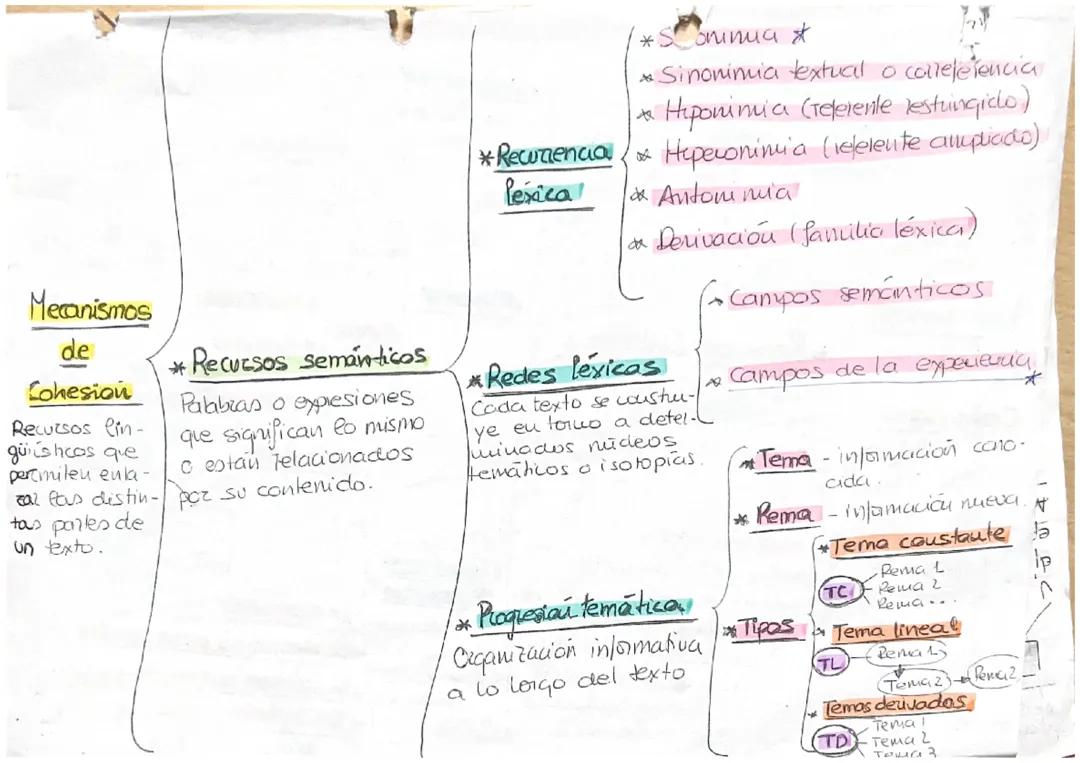 Mecanismos
de
Cohesión
Recursos lin-
güísticos que
permiten enla-
zar las distin-
tas partes de
un texto.
* Recursos semánticos
Palabras o expresiones
que significan lo mismo
o están relacionados
por su contenido.
* Recurrencia
léxica
* Sinonimia *
* Sinonimia textual o correferencia
* Hiponimia (referente restringido)
* Hiperonimia (referente ampliado)
* Antonimia
* Derivación (familia léxica)
* Redes léxicas
Cada texto se constru-
ye en torno a deter-
minados núcleos
temáticos o isotopías.
* Campos semánticos
* Campos de la experiencia *
* Progresión temática
Organización informativa
a lo largo del texto
* Tema - información cono-
cida.
* Rema - información nueva.
* Tipos
* Tema constante
TC
Rema 1
Rema 2
Rema ...
* Tema lineal
TL
Rema 1
Tema 2
Rema 2
* Temas derivados
TD
Tema 1
Tema 2
Tema 3